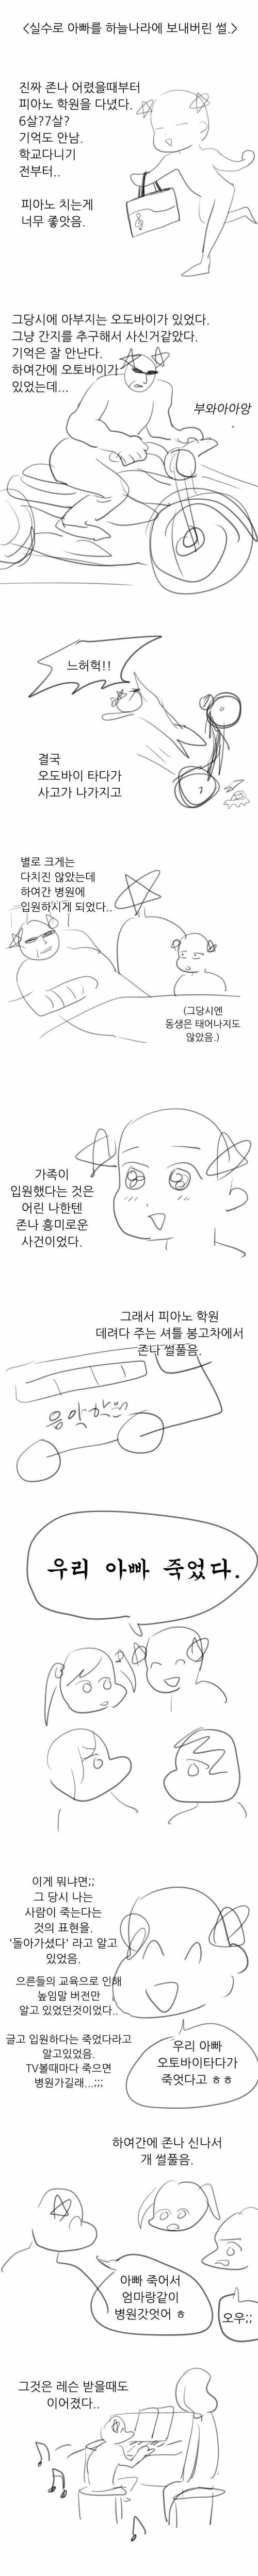 <실수로 아빠를 하늘나라에 보내버린 썰.>
진짜 존나 어렸을때부터
피아노 학원을 다녔다.
6살?7살?
기억도 안남.
학교다니기
전부터..
피아노 치는게
너무 좋앗음.
그당시에 아부지는 오도바이가 있었다.
그냥 간지를 추구해서 사신거같았다.
기억은 잘 안난다.
하여간에 오토바이가
있었는데...
부와아아앙
느허헉!!
결국
오도바이 타다가
사고가 나가지고
별로 크게는
다치진 않았는데
하여간 병원에
입원하시게 되었다..
(그당시엔
동생은 태어나지도
않았음.)
가족이
입원했다는 것은
어린 나한텐
존나 흥미로운
사건이었다.
그래서 피아노 학원
데려다 주는 셔틀 봉고차에서
존나 썰풀음.
음악학원
우리 아빠 죽었다.
이게 뭐냐면;;
그 당시 나는
사람이 죽는다는
것의 표현을.
'돌아가셨다' 라고 알고
있었음.
으른들의 교육으로 인해
높임말 버전만
알고 있었던것이었다..
글고 입원하다는 죽었다라고
알고있었음.
TV볼때마다 죽으면
병원가길래...;;;
우리 아빠
오토바이타다가
죽엇다고 ㅎㅎ
하여간에 존나 신나서
개 썰풀음.
아빠 죽어서
엄마랑같이
병원갓엇어 ㅎ
오우;;
그것은 레슨 받을때도
이어졌다..